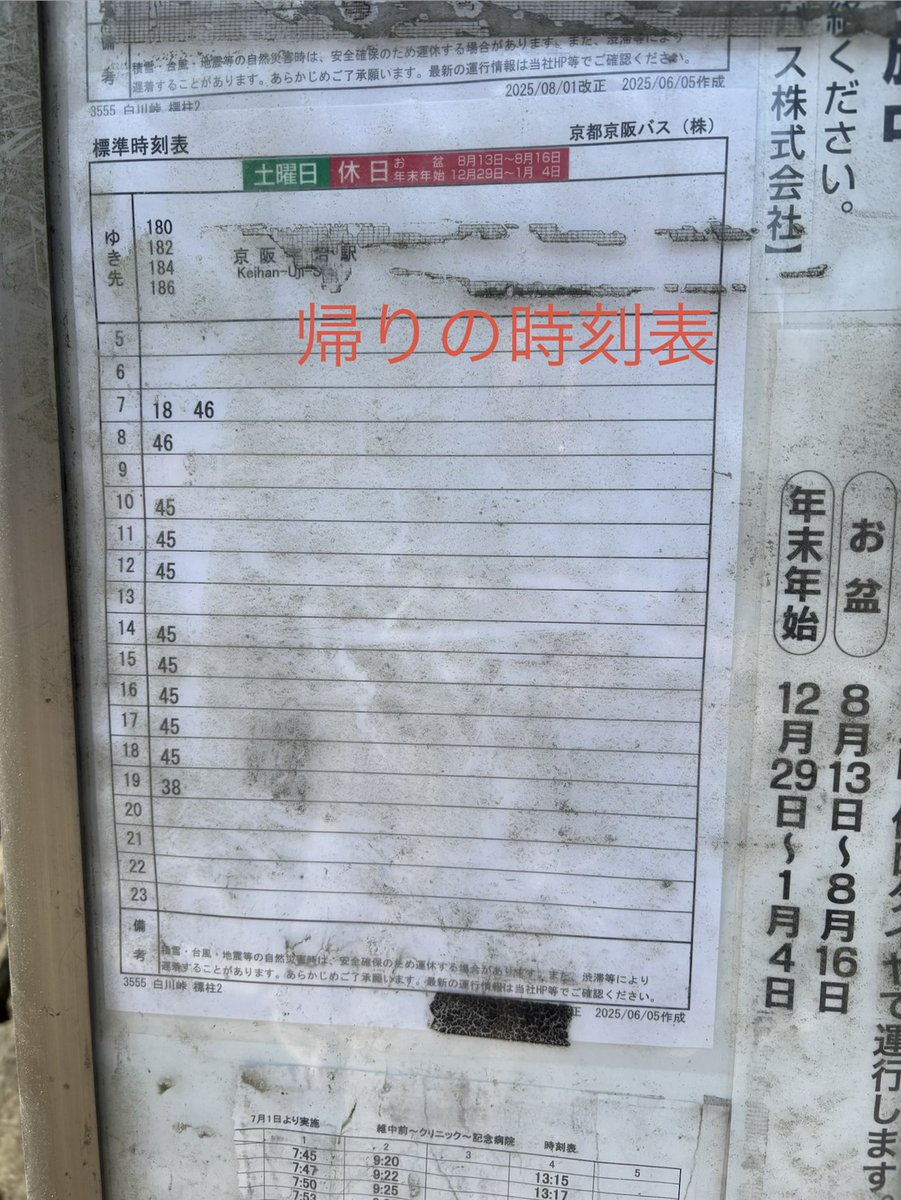 備
考
積雪・台風・地震等の自然災害時は、安全確保のため運休する場合があります。また、渋滞等により
遅着することがあります。あらかじめご了承願います。最新の運行情報は当社HP等でご確認ください。
2025/08/01改正 2025/06/05作成
3555 白川峠 標柱2
標準時刻表
京都京阪バス（株）
土曜日 休日 お盆 8月13日～8月16日
年末年始 12月29日～1月 4日
ゆき先
180
182
184
186
京阪 治駅
Keihan-Uji-S
帰りの時刻表
5
6
7 18 46
8 46
9
10 45
11 45
12 45
13
14 45
15 45
16 45
17 45
18 45
19 38
20
21
22
23
備
考
積雪・台風・地震等の自然災害時は、安全確保のため運休する場合があります。また、渋滞等により
遅着することがあります。あらかじめご了承願います。最新の運行情報は当社HP等でご確認ください。
3555 白川峠 標柱2
正 2025/06/05作成
絡ください。
ス株式会社】
お盆 8月13日～8月16日
年末年始 12月29日～1月4日
て運行します。
7月1日より実施
維中前～クリニック～記念病院 時刻表
1 2 3 4 5
7:45 9:20 13:15
7:47 9:22 13:17
7:50 9:25
7:53